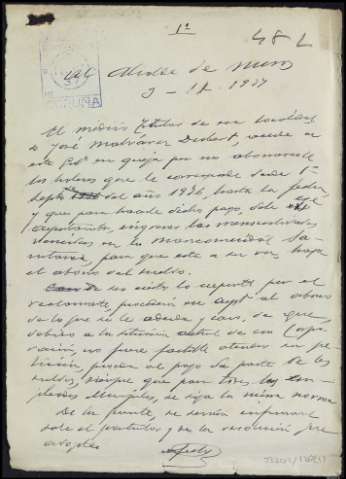 1º
484
Al Alcalde de Muros
3-12-1937
El médico titular de esa localidad
D. José Malvárez Dubert, acude a
este en queja por no abonarsele
los haberes que le corresponde desde 1º
Septe del año 1936, hasta la fecha,
y que para hacerle dicho pago, debe ese
Ayuntamiento, ingresar las mensualidades
vencidas en la mancomunidad Sa-
nitaria, para que este a su vez, haga
el abono del sueldo.
De ser cierto lo expuesto por el
reclamante, procederá ese aynto al abono
de lo que se le adeuda y caso, de que,
debido a la situación actual de esa Corpo-
ración, no fuera factible atender su pe-
tición, proceda al pago de parte de los
sueldos, siempre que para todos los em-
pleados Municipales, se siga la misma norma
De la presente, se servirá informar
sobre el particular y de la resolución que
adopte